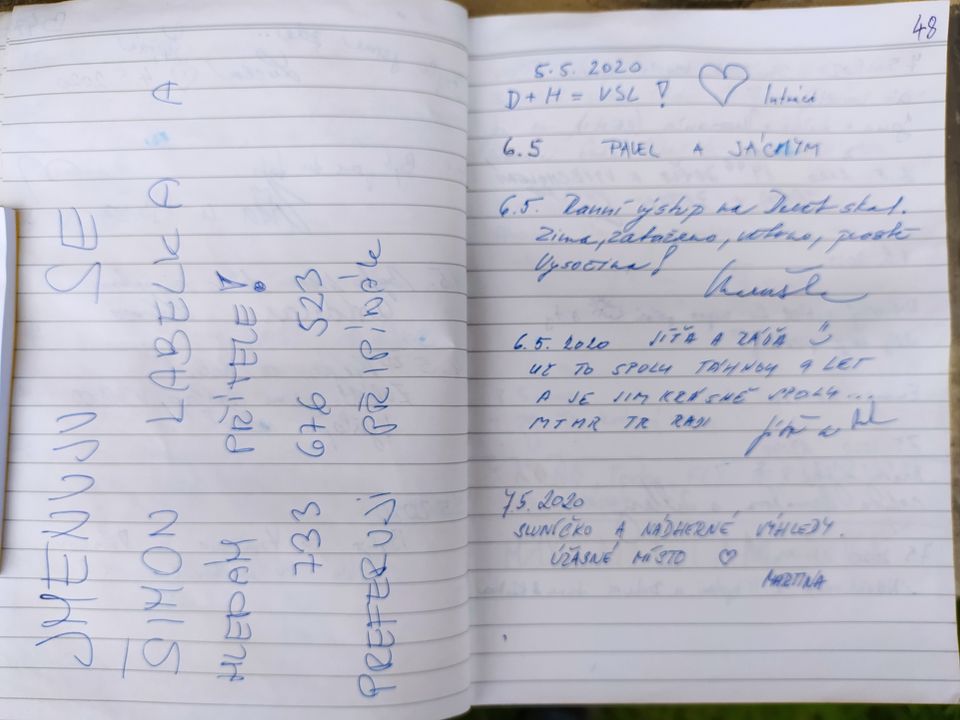 JMENUJU SE
ŠIMON LABELKA A
HLEDÁM PŘÍTELE!
733 676 523
PREFERUJI PŘIPÍNÁK
48
5.5. 2020
D + H = VSL !
6.5 PAVEL A JÁCHYM
6.5. Ranní výstup na skal.
Zima, zataženo, větrno, prostě
Vysočina!
6.5. 2020 JÍŤA A RÁĎA
UŽ TO SPOLU TÁHNOU 9 LET
A JE JIM KRÁSNĚ SPOLU...
MTMR TR RADI
7.5. 2020
SLUNÍČKO A NÁDHERNÉ VÝHLEDY.
ÚŽASNÉ MÍSTO ♡
MARTINA